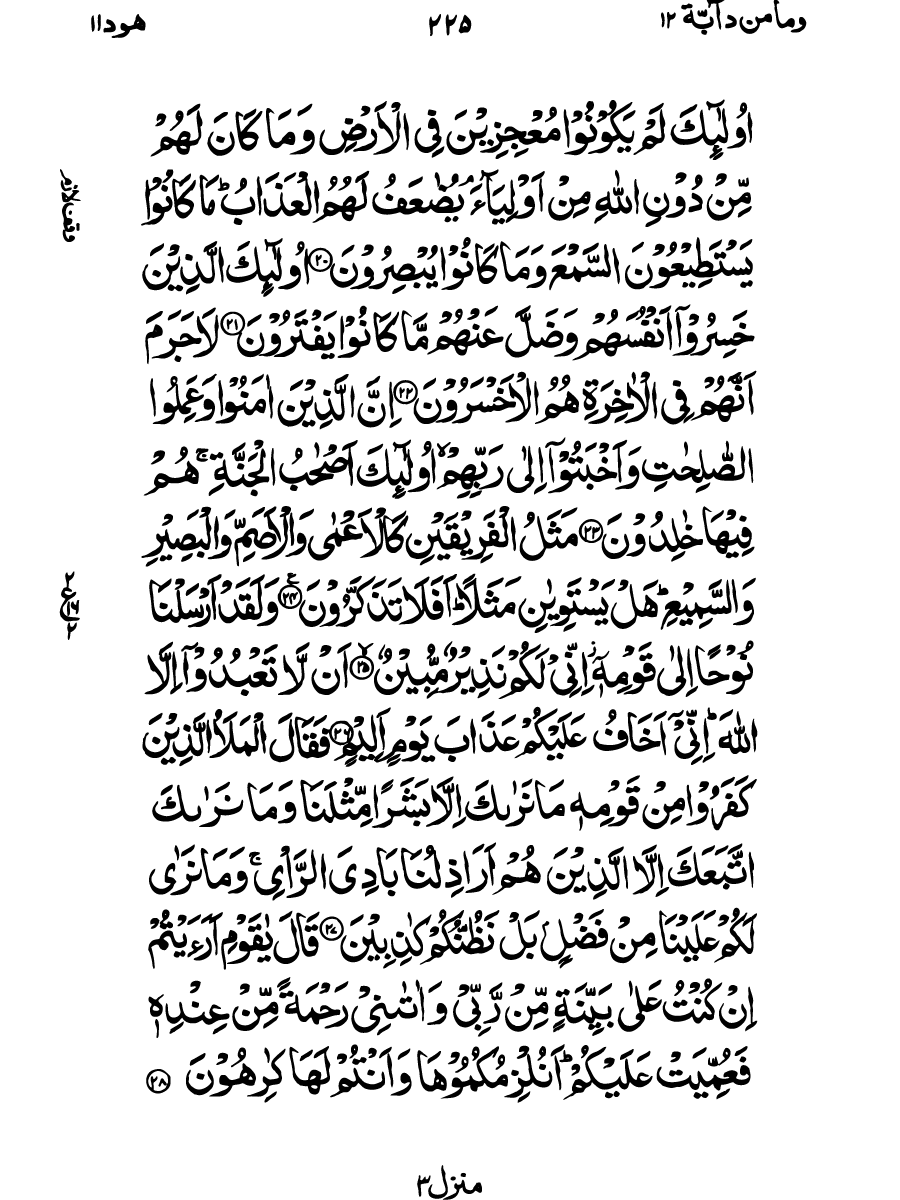 ومامن دآبّة ١٢
٢٢٥
هود ١١
اُولٰٓئِكَ لَمْ يَكُوْنُوْا مُعْجِزِيْنَ فِى الْاَرْضِ وَمَا كَانَ لَهُمْ
مِّنْ دُوْنِ اللّٰهِ مِنْ اَوْلِيَآءَ ۘ يُضٰعَفُ لَهُمُ الْعَذَابُ ؕ مَا كَانُوْا
وقف لازم
يَسْتَطِيْعُوْنَ السَّمْعَ وَمَا كَانُوْا يُبْصِرُوْنَ ﴿۲۰﴾ اُولٰٓئِكَ الَّذِيْنَ
خَسِرُوْۤا اَنْفُسَهُمْ وَضَلَّ عَنْهُمْ مَّا كَانُوْا يَفْتَرُوْنَ ﴿۲۱﴾ لَا جَرَمَ
اَنَّهُمْ فِى الْاٰخِرَةِ هُمُ الْاَخْسَرُوْنَ ﴿۲۲﴾ اِنَّ الَّذِيْنَ اٰمَنُوْا وَعَمِلُوا
الصّٰلِحٰتِ وَاَخْبَتُوْۤا اِلٰى رَبِّهِمْ ۙ اُولٰٓئِكَ اَصْحٰبُ الْجَنَّةِ ۚ هُمْ
فِيْهَا خٰلِدُوْنَ ﴿۲۳﴾ مَثَلُ الْفَرِيْقَيْنِ كَالْاَعْمٰى وَالْاَصَمِّ وَالْبَصِيْرِ
وَالسَّمِيْعِ ؕ هَلْ يَسْتَوِيٰنِ مَثَلًا ؕ اَفَلَا تَذَكَّرُوْنَ ﴿۲۴﴾ وَلَقَدْ اَرْسَلْنَا
نُوْحًا اِلٰى قَوْمِهٖۤ ؗ اِنِّىْ لَكُمْ نَذِيْرٌ مُّبِيْنٌ ﴿۲۵﴾ اَنْ لَّا تَعْبُدُوْۤا اِلَّا
اللّٰهَ ؕ اِنِّىْۤ اَخَافُ عَلَيْكُمْ عَذَابَ يَوْمٍ اَلِيْمٍ ﴿۲۶﴾ فَقَالَ الْمَلَاُ الَّذِيْنَ
كَفَرُوْا مِنْ قَوْمِهٖ مَا نَرٰىكَ اِلَّا بَشَرًا مِّثْلَنَا وَمَا نَرٰىكَ
اتَّبَعَكَ اِلَّا الَّذِيْنَ هُمْ اَرَاذِلُنَا بَادِىَ الرَّاْىِ ۚ وَمَا نَرٰى
لَكُمْ عَلَيْنَا مِنْ فَضْلٍۭ بَلْ نَظُنُّكُمْ كٰذِبِيْنَ ﴿۲۷﴾ قَالَ يٰقَوْمِ اَرَءَيْتُمْ
اِنْ كُنْتُ عَلٰى بَيِّنَةٍ مِّنْ رَّبِّىْ وَاٰتٰىنِىْ رَحْمَةً مِّنْ عِنْدِهٖ
فَعُمِّيَتْ عَلَيْكُمْ ؕ اَنُلْزِمُكُمُوْهَا وَاَنْتُمْ لَهَا كٰرِهُوْنَ ﴿۲۸﴾
منزل ٣